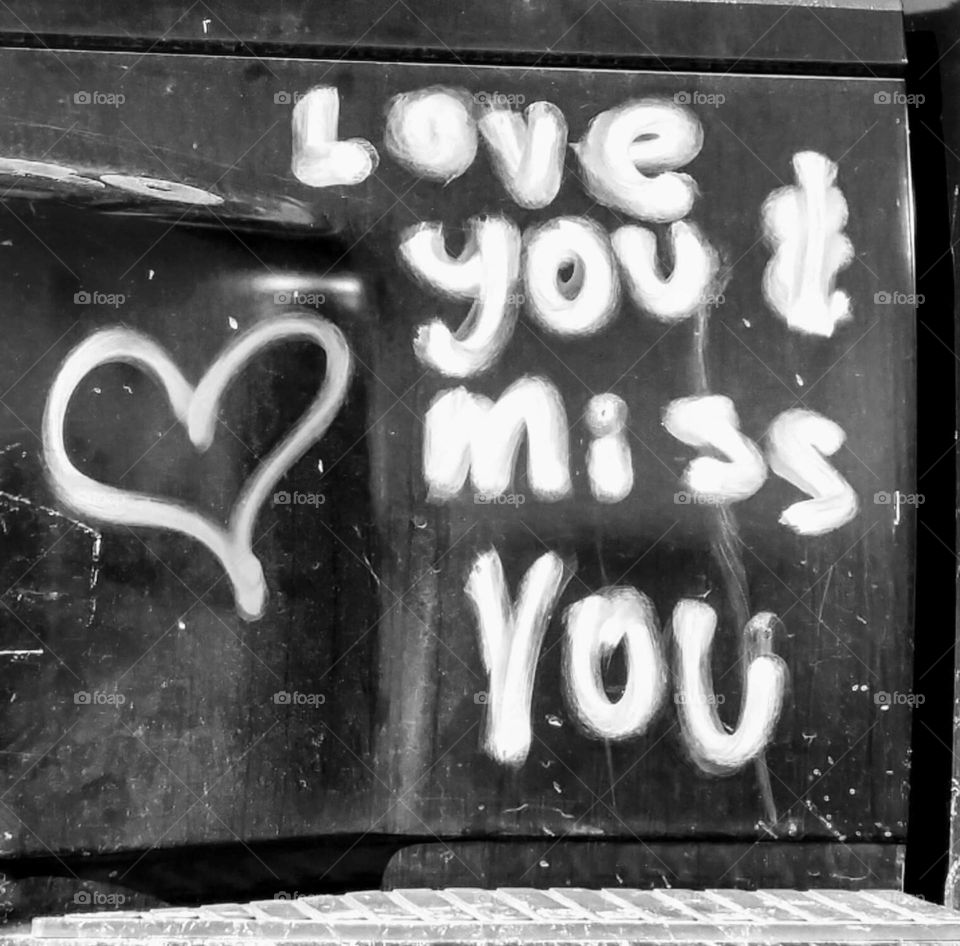 Love
you &
miss
YOU